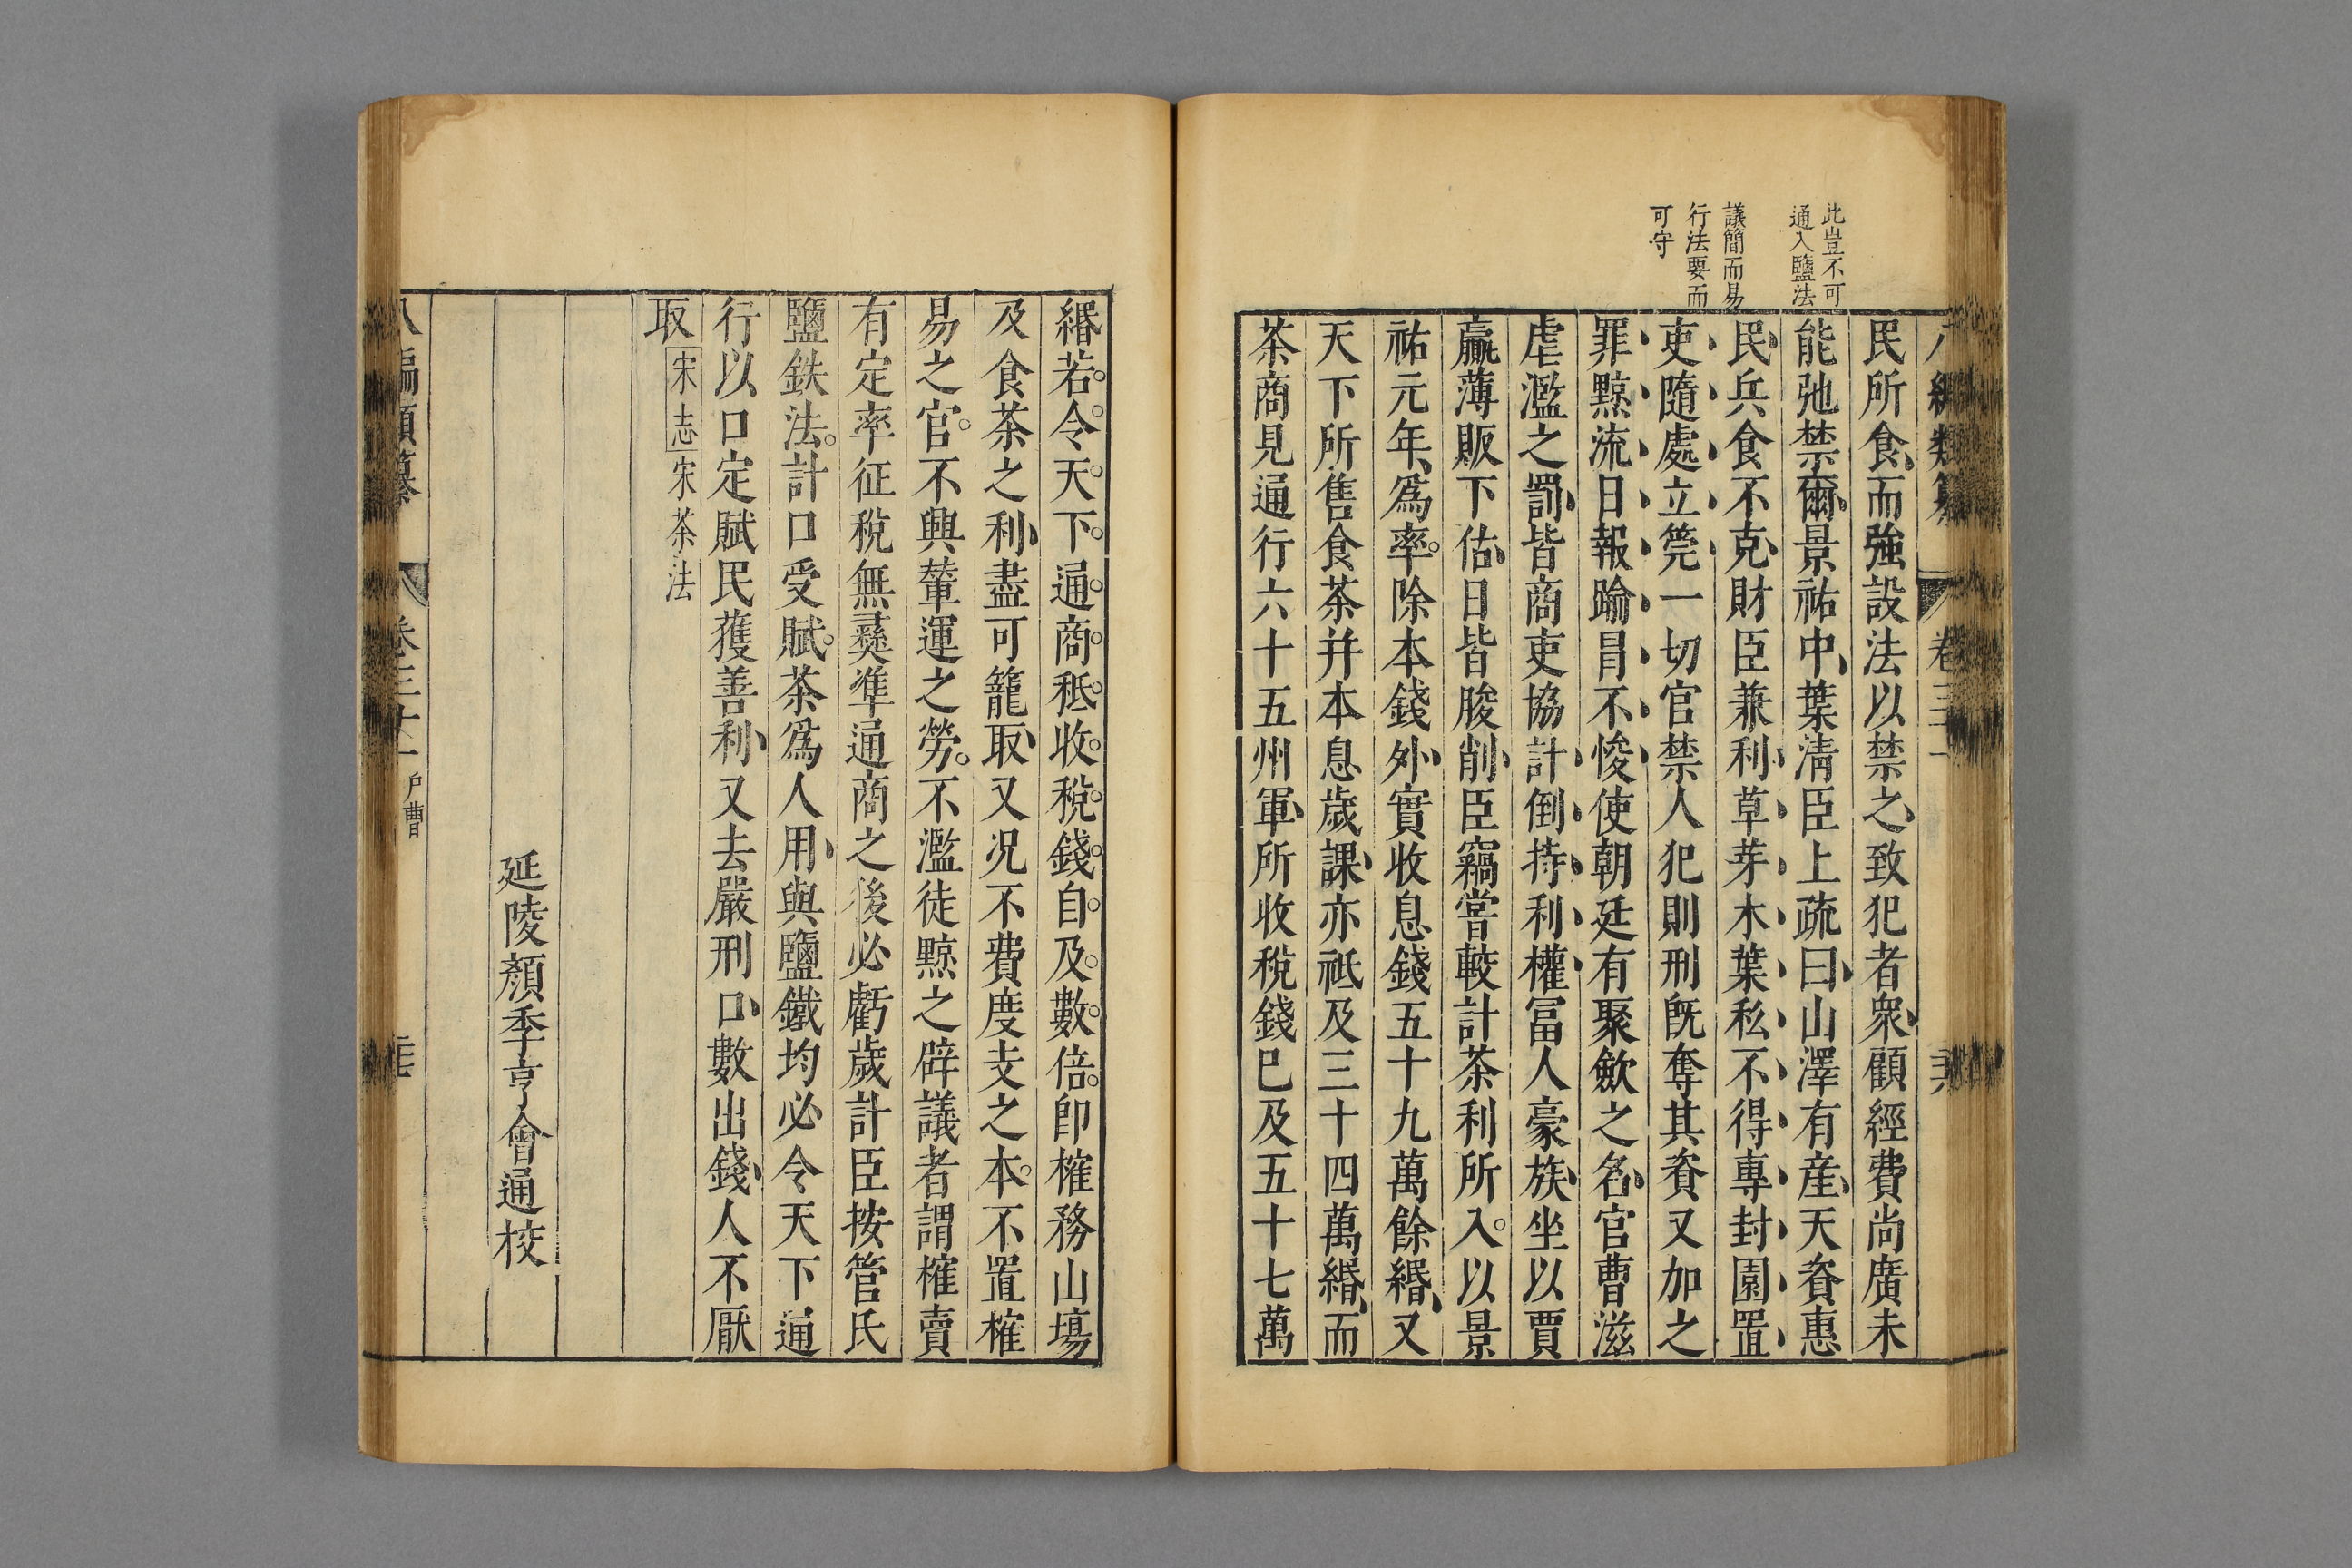 此豈不可
通入鹽法
議簡而易
行法要而
可守
民所食而強設法以禁之致犯者衆顧經費尚廣未
能弛禁爾景祐中葉淸臣上疏曰山澤有産天資惠
民兵食不克財臣兼利草芽木葉私不得專封園置
吏隨處立筦一切官禁人犯則刑旣奪其資又加之
罪黥流日報踰冒不悛使朝廷有聚歛之名官曹滋
虐濫之罰皆商吏協計倒持利權冨人豪族坐以賈
贏薄販下估日皆朘削臣竊甞較計茶利所入以景
祐元年爲率除本錢外實收息錢五十九萬餘緡又
天下所售食茶并本息歲課亦祗及三十四萬緡而
茶商見通行六十五州軍所收稅錢巳及五十七萬
緡若令天下通商秪收稅錢自及數倍卽榷務山塲
及食茶之利盡可籠取又况不費度支之本不置榷
易之官不興輦運之勞不濫徒黥之辟議者謂榷賣
有定率征稅無彛準通商之後必虧歲計臣按管氏
鹽鉄法計口受賦茶爲人用與鹽鐵均必令天下通
行以口定賦民獲善利又去嚴刑口數出錢人不厭
取 宋志 宋茶法
延陵顏季亨會通校
八編類纂 卷 戶曹